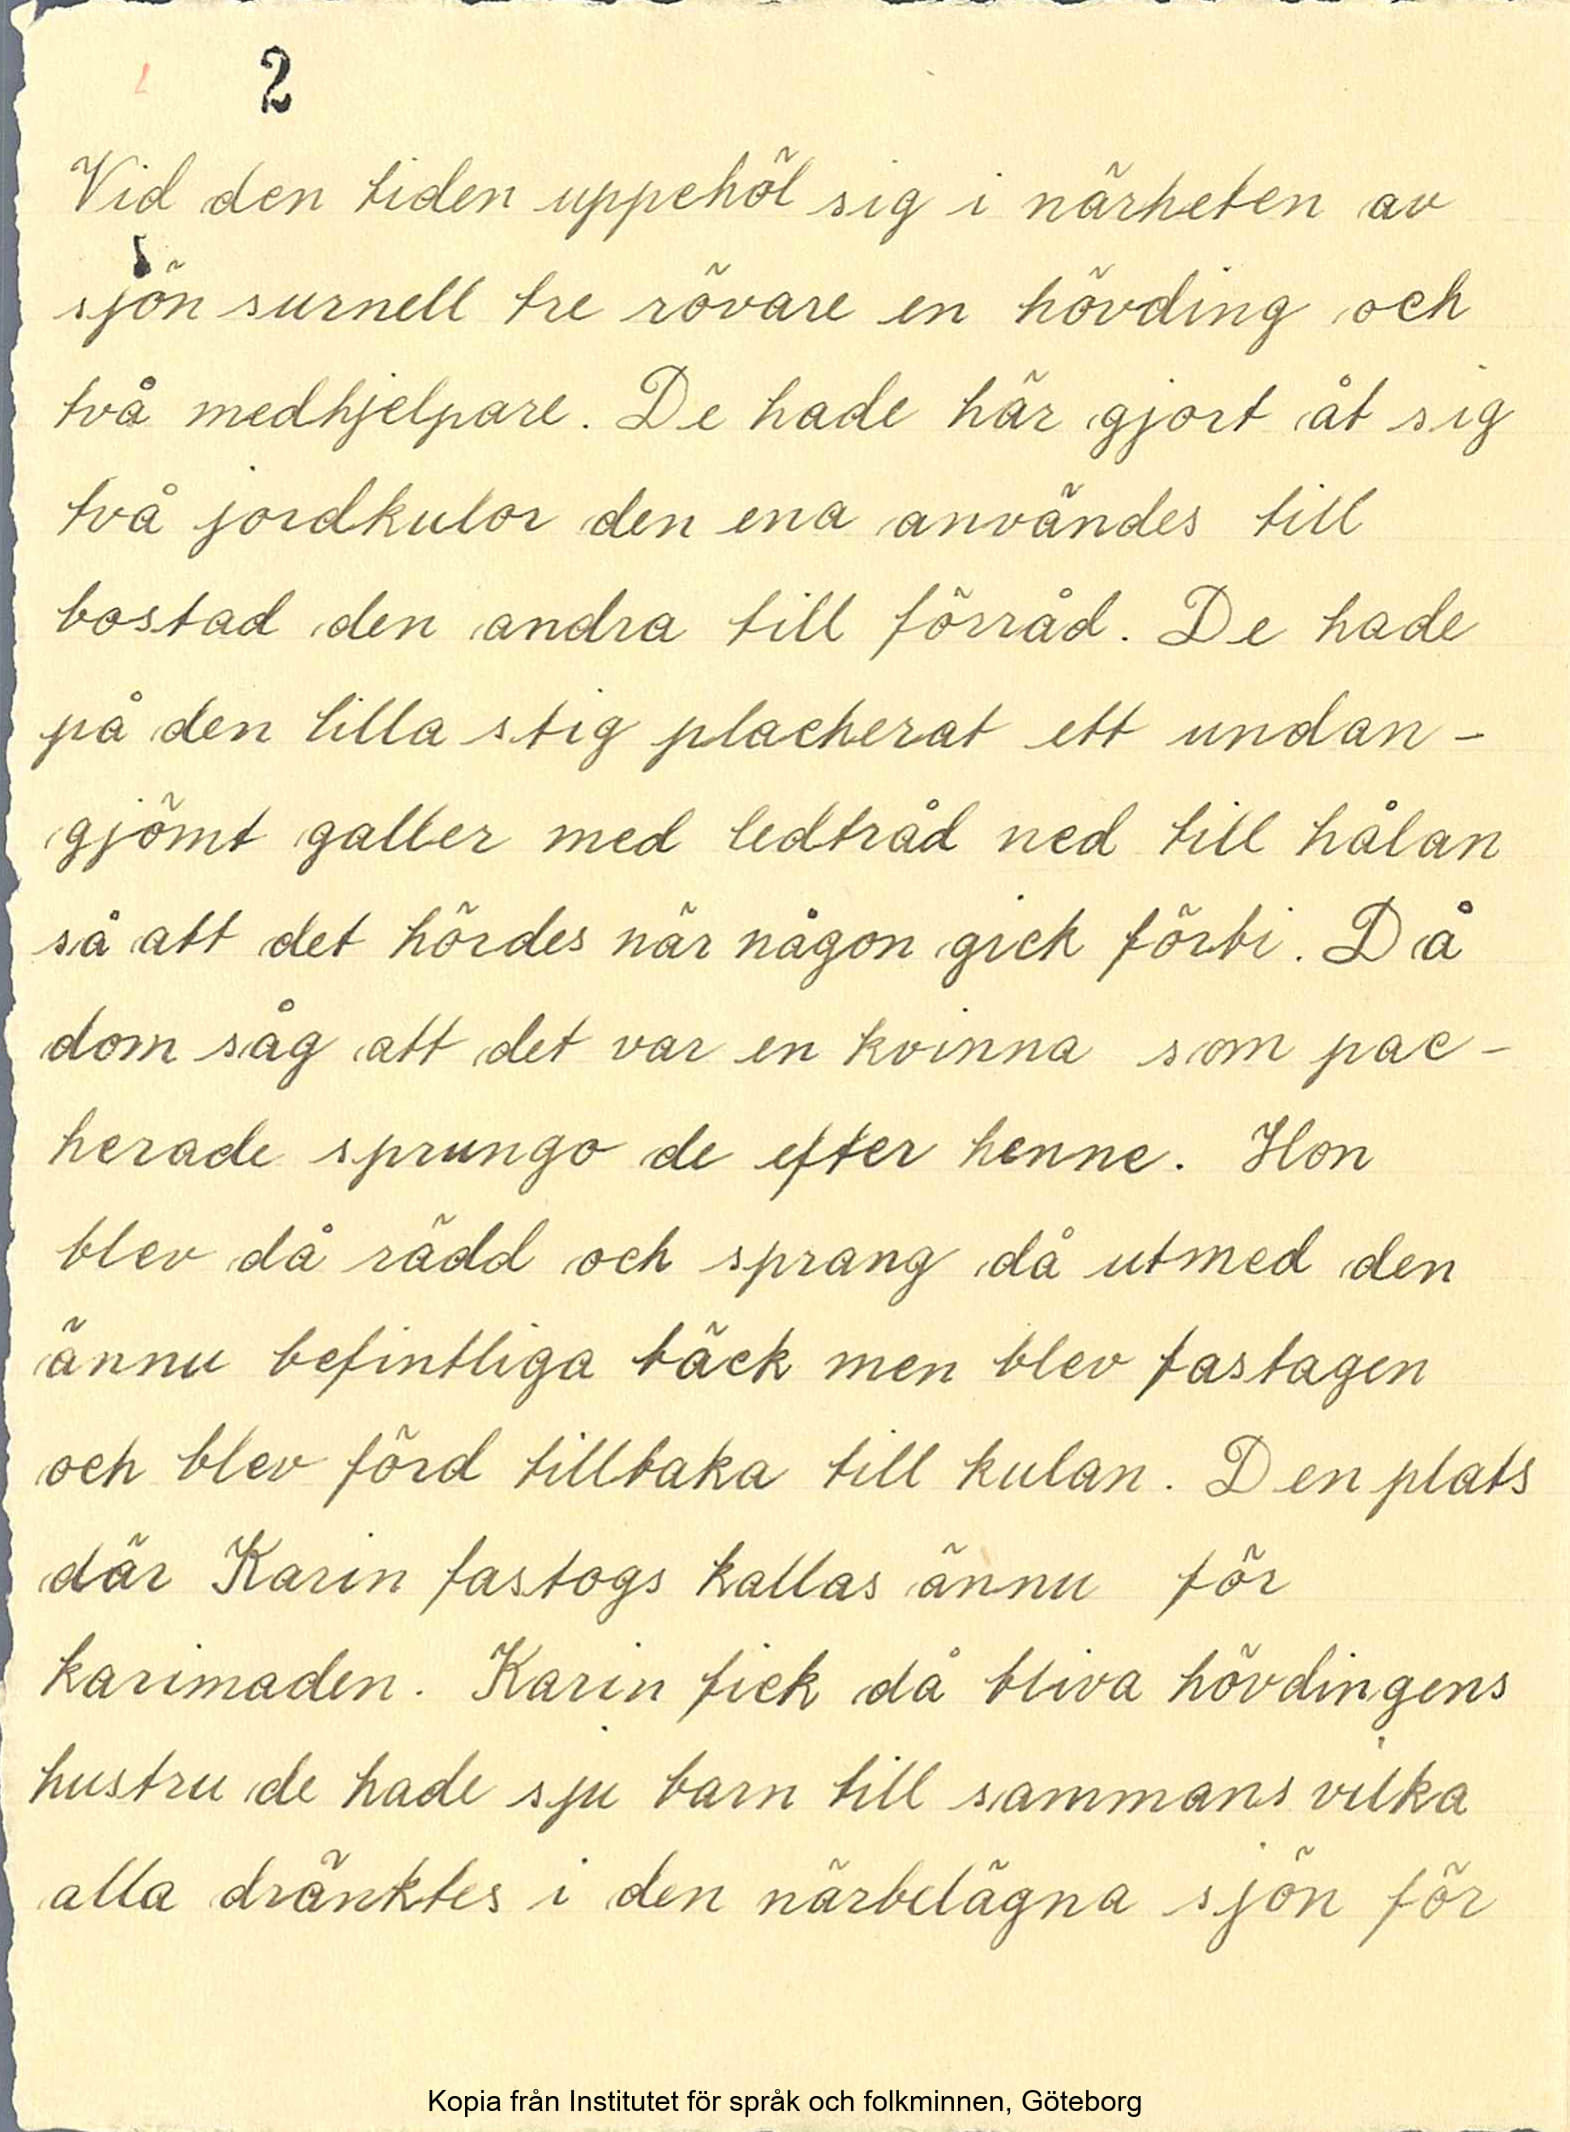 2
Vid den tiden uppehöl sig i närheten av
sjön surnell tre rövare en hövding och
två medhjelpare. De hade här gjort åt sig
två jordkulor den ena användes till
bostad den andra till förråd. De hade
på den lilla stig placherat ett undan-
gjömt galler med ledtråd ned till hålan
så att det hördes när någon gick förbi. Då
dom såg att det var en kvinna som pac-
herade sprungo de efter henne. Hon
blev då rädd och sprang då utmed den
ännu befintliga bäck men blev fastagen
och blev förd tillbaka till kulan. Den plats
där Karin fastogs kallas ännu för
karimaden. Karin fick då bliva hövdingens
hustru de hade sju barn till sammans vilka
alla dränktes i den närbelägna sjön för
Kopia från Institutet för språk och folkminnen, Göteborg